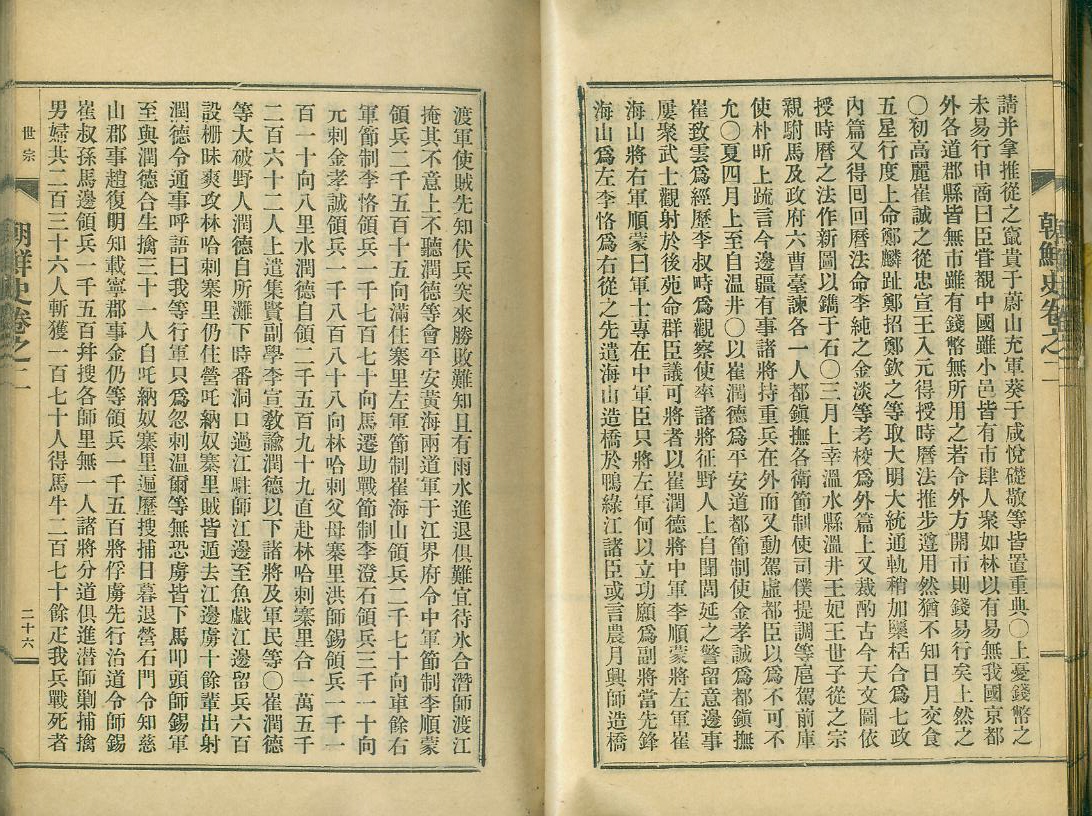 朝鮮史卷之二
請并拿推從之竄貴于蔚山充軍葵于咸悅礎敬等皆置重典〇上憂錢幣之
未易行申商曰臣嘗覩中國雖小邑皆有市肆人聚如林以有易無我國京都
外各道郡縣皆無市雖有錢幣無所用之若令外方開市則錢易行矣上然之
〇初高麗崔誠之從忠宣王入元得授時曆法推步遵用然猶不知日月交食
五星行度上命鄭麟趾鄭招鄭欽之等取大明大統通軌稍加櫽栝合爲七政
內篇又得回回曆法命李純之金淡等考校爲外篇上又裁酌古今天文圖依
授時曆之法作新圖以鐫于石〇三月上幸溫水縣溫井王妃王世子從之宗
親駙馬及政府六曹臺諫各一人都鎭撫各衛節制使司僕提調等扈駕前庫
使朴昕上疏言今邊疆有事諸將持重兵在外而又動駕虛都臣以爲不可不
允〇夏四月上至自温井〇以崔潤德爲平安道都節制使金孝誠爲都鎭撫
崔致雲爲經歷李叔畤爲觀察使率諸將征野人上自聞閭延之警留意邊事
屢聚武士觀射於後苑命群臣議可將者以崔潤德將中軍李順蒙將左軍崔
海山將右軍順蒙曰軍士專在中軍臣只將左軍何以立功願爲副將當先鋒
海山爲左李恪爲右從之先遣海山造橋於鴨綠江諸臣或言農月興師造橋
渡軍使賊先知伏兵突來勝敗難知且有雨水進退俱難宜待氷合潛師渡江
掩其不意上不聽潤德等會平安黃海兩道軍于江界府令中軍節制李順蒙
領兵二千五百十五向滿住寨里左軍節制崔海山領兵二千七十向車餘右
軍節制李恪領兵一千七百七十向馬遷助戰節制李澄石領兵三千一十向
元剌金孝誠領兵一千八百八十八向林哈剌父母寨里洪師錫領兵一千一
百一十向八里水潤德自領二千五百九十九直赴林哈剌寨里合一萬五千
二百六十二人上遣集賢副學李宣敎諭潤德以下諸將及軍民等〇崔潤德
等大破野人潤德自所灘下時番洞口過江駐師江邊至魚戱江邊留兵六百
設柵昧爽攻林哈剌寨里仍住營吒納奴寨里賊皆遁去江邊虜十餘輩出射
潤德令通事呼語曰我等行軍只爲忽剌温爾等無恐虜皆下馬叩頭師錫軍
至與潤德合生擒三十一人自吒納奴寨里遍歷搜捕日暮退營石門令知慈
山郡事趙復明知載寧郡事金仍等領兵一千五百將俘虜先行治道令師錫
崔叔孫馬邊領兵一千五百并搜各師里無一人諸將分道俱進潛師剿捕擒
男婦共二百三十六人斬獲一百七十人得馬牛二百七十餘疋我兵戰死者
世宗
朝鮮史卷之二
二十六